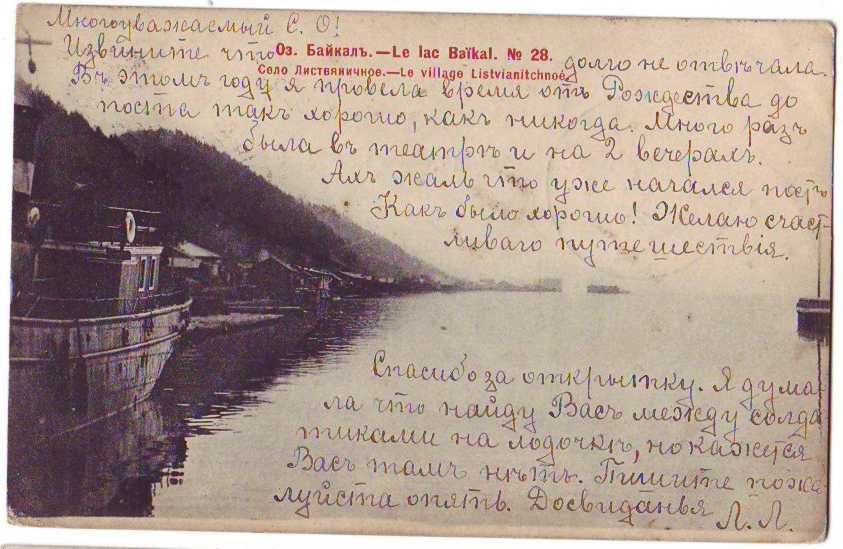 Многоуважаемый С. О!
Извините что
Оз. Байкалъ.—Le lac Baïkal. № 28.
долго не отвѣчала.
Село Листвяничное.—Le village Listvianitchnoé.
Въ этомъ году я провела время отъ Рождества до
поста такъ хорошо, какъ никогда. Много разъ
была въ театрѣ и на 2 вечерахъ.
Ахъ жаль что уже начался постъ
Какъ было хорошо! Желаю счаст-
ливаго путешествія.
Спасибо за открытку. Я дума-
ла что найду Васъ между солда
тиками на лодочкѣ, но кажется
Васъ тамъ нѣтъ. Пишите пожа-
луйста опять. Досвиданья
Л. Л.